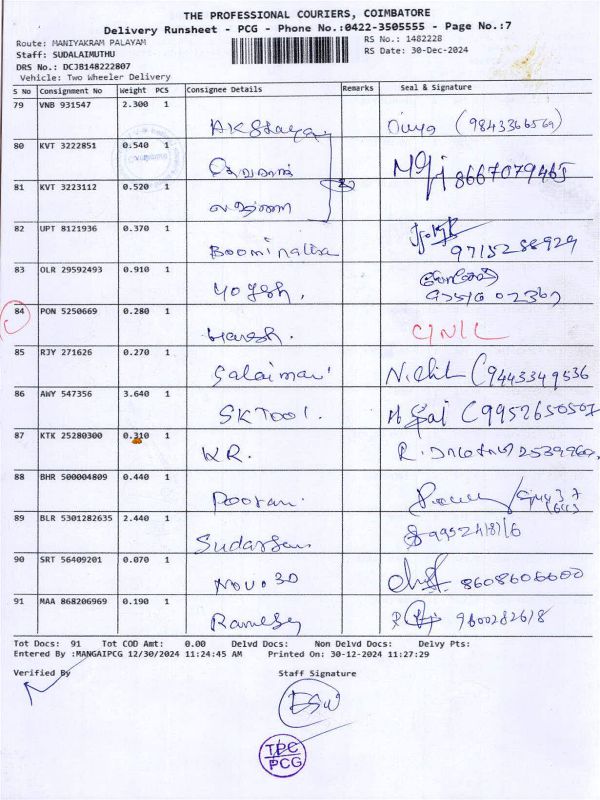 THE PROFESSIONAL COURIERS, COIMBATORE
Delivery Runsheet - PCG - Phone No.:0422-3505555 - Page No.:7
Route: MANIYAKRAM PALAYAM
RS No.: 1482228
Staff: SUDALAIMUTHU
RS Date: 30-Dec-2024
DRS No.: DCJB148222807
Vehicle: Two Wheeler Delivery
S No Consignment No Weight PCS Consignee Details Remarks Seal & Signature
79 VNB 931547 2.300 1 Divya (9843366569)
80 KVT 3222851 0.540 1 8667079465
81 KVT 3223112 0.520 1
82 UPT 8121936 0.370 1 Boominathan 9715288929
83 OLR 29592493 0.910 1 Yogesh.
84 PON 5250669 0.280 1 Haresh. C/N/L
85 RJY 271626 0.270 1 Salaimani (9443349536
86 AWY 547356 3.640 1 SK Tool. (9952650507
87 KTK 25280300 0.310 1 KR.
88 BHR 500004809 0.440 1 Pooran.
89 BLR 5301282635 2.440 1 Sudarsan
90 SRT 56409201 0.070 1 Novo 3D 8608606600
91 MAA 868206969 0.190 1 Ramesh 9600282618
Tot Docs: 91 Tot COD Amt: 0.00 Delvd Docs: Non Delvd Docs: Delvy Pts:
Entered By :MANGAIPCG 12/30/2024 11:24:45 AM Printed On: 30-12-2024 11:27:29
Verified By Staff Signature
ESW
TPC
PCG